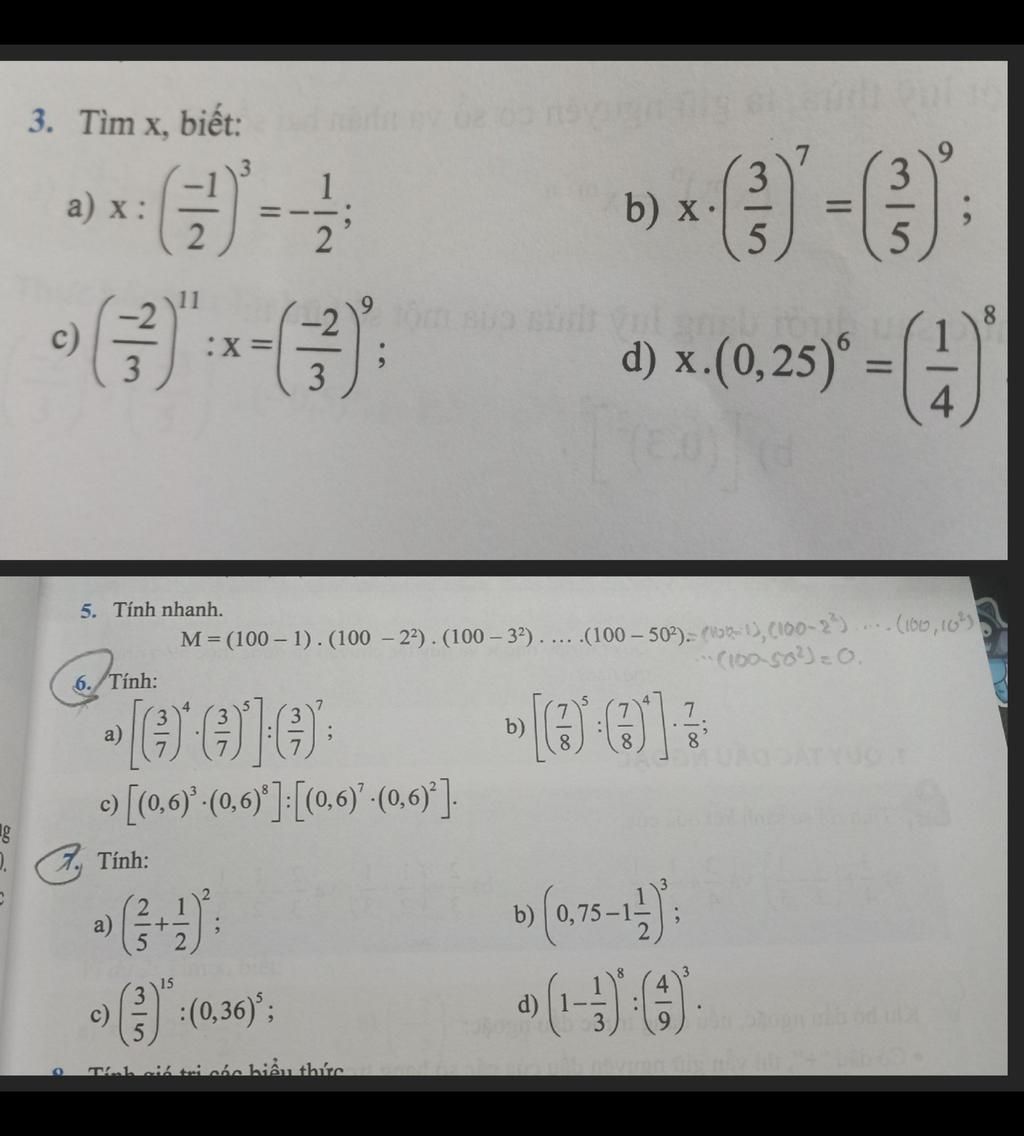 3. Tìm x, biết:
a) x : (-1/2)^3 = -1/2;
b) x · (3/5)^7 = (3/5)^9;
c) (-2/3)^11 : x = (-2/3)^9;
d) x.(0,25)^6 = (1/4)^8
5. Tính nhanh.
M = (100 – 1) . (100 – 2²) . (100 – 3²) . ... .(100 – 50²). = (100-1).(100-2²) .... (100,10²)
...(100-50²) = 0.
6. Tính:
a) [(3/7)^4 · (3/7)^5] : (3/7)^7;
b) [(7/8)^5 : (7/8)^4] · 7/8;
c) [(0,6)^3 · (0,6)^8] : [(0,6)^7 · (0,6)^2].
7. Tính:
a) (2/5 + 1/2)^2;
b) (0,75 – 1 1/2)^3;
c) (3/5)^15 : (0,36)^5;
d) (1 – 1/3)^8 : (4/9)^3.
Tính giá trị các biểu thức